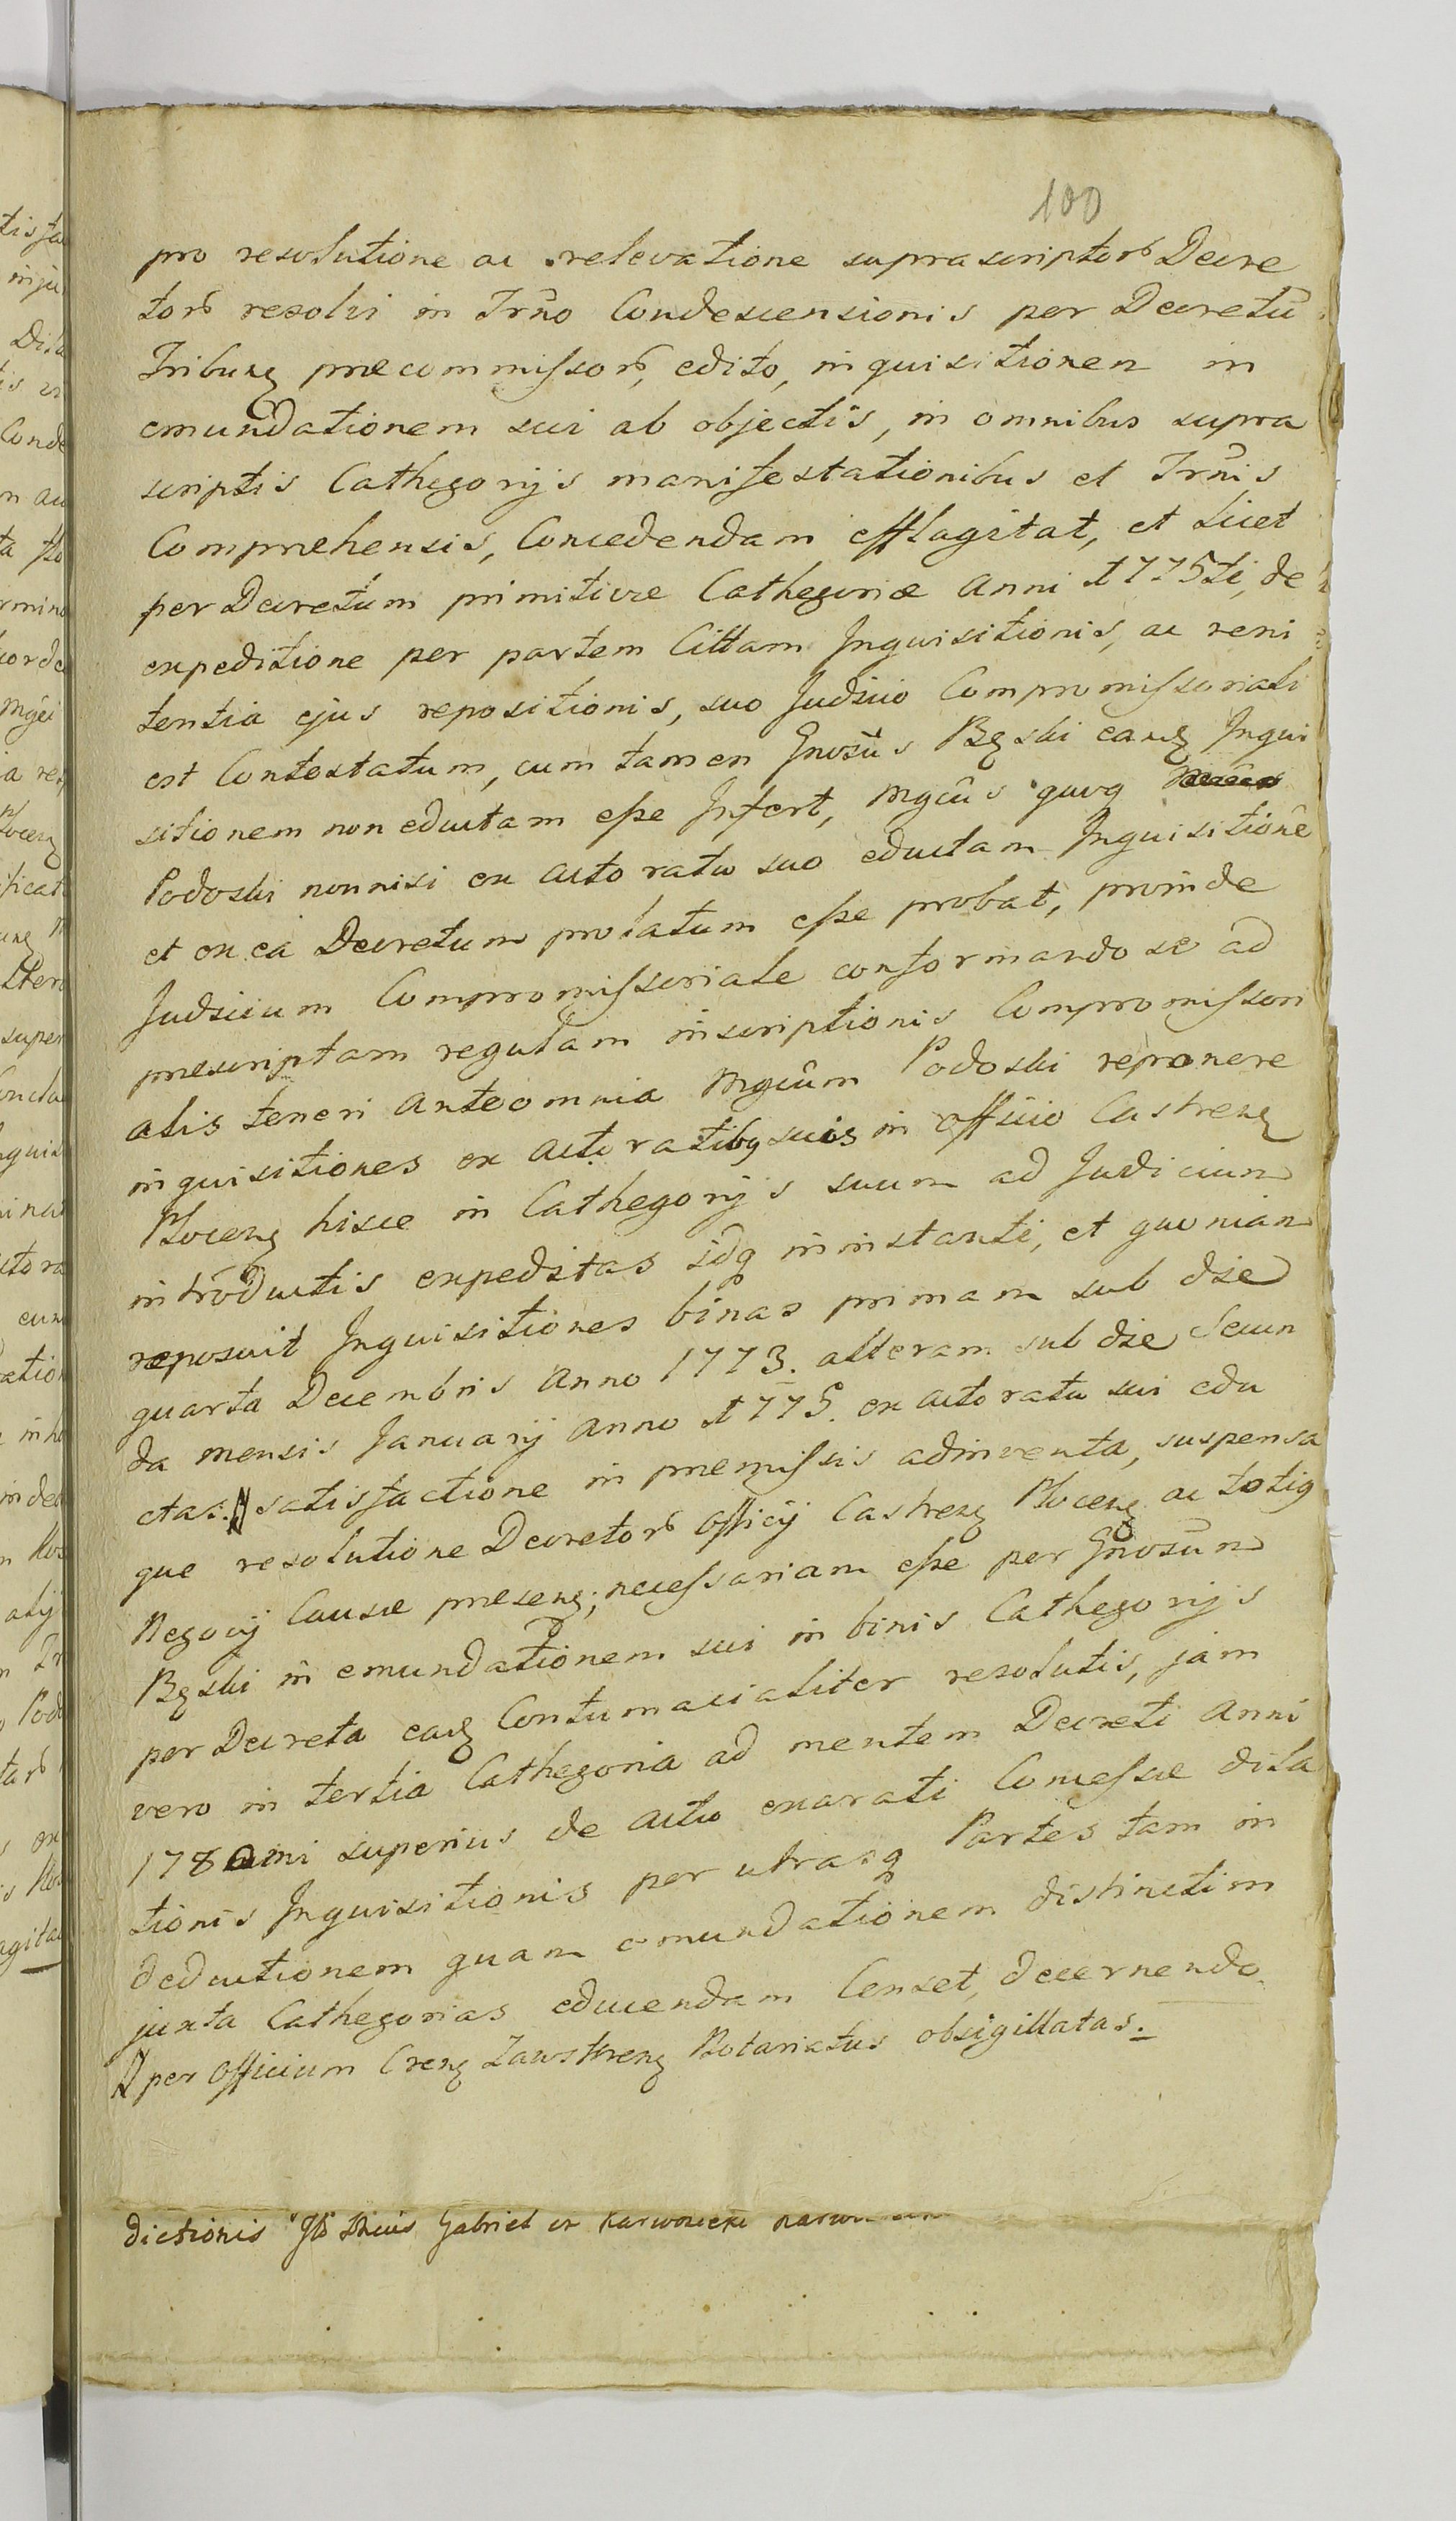 100
pro resolutione ac relevatione suprascriptorb Decre
torb resolvi in Trn̄o Condescensionis per Decretū
Tribunꝫ præcommissorb, edito, inquisitionem in
emundationem sui ab objectis, in omnibus supra
scriptis Cathegorijs manifestationibus et Trn̄is
Comprehensis, Concedendam efflagitat, et licet
per Decretum primitivæ Cathegoriæ Anni 1775ti, de
expeditione per partem Cittam Inquisitionis, ac reni
tentia ejus repositionis, suo Judicio Compromissoriali
est Contestatum, cum tamen Gnosūs Bꝫski eanꝫ Inqui
sitionem non eductam esse Infert, Mgcūs quoq
Podoski nonnisi ex Actoratu suo eductam Inquisitionē
et ex ea Decretum prolatum esse probat, proinde
Judicium Compromissoriale conformando se ad
præscriptam regulam inscriptionis Compromissori
alis teneri Anteomnia Mgcūm Podoski reponere
inquisitiones ex Actoratibq suis in officio Castrenꝫ
Plocenꝫ hisce in Cathegorijs suum ad Judicium
introductis expeditas idq in instanti, et quoniam
reposuit Inquisitiones binas primam sub die
quarta Decembris Anno 1773. alteram sub die Secun
da mensis Januarij Anno 1775. ex Actoratu sui edu
ctas: satisfactione in præmissis adinventa, suspensa
que resolutione Decretorb Officij Castrenꝫ Plocenꝫ ac totiq
Negocij Causæ præsenꝫ, necessariam esse per Gnosūm
Bꝫski in emundationem sui in binis Cathegorijs
per Decreta eadꝫ Contumacialiter resolutis, jam
vero in tertia Cathegoria ad mentem Decreti Anni
1780mi superius de Actu exarati Concessæ dila
tionis Inquisitionis per utrasq Partes tam in
deductionem quam emundationem distinctim
juxta Cathegorias educendam Censet, decernendo
per Officium Crenꝫ Zawskrenꝫ Notariatus obsigillatas.
dictionis Gabriel ex Karwosieki